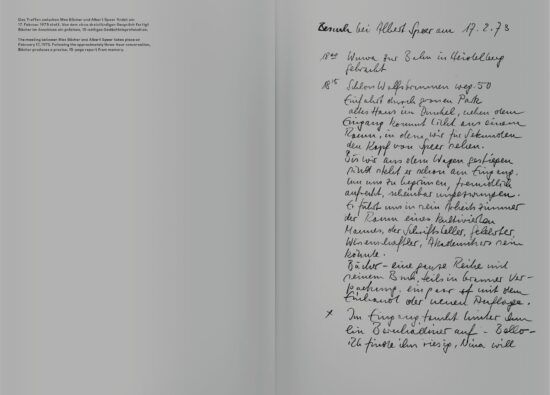 Das Treffen zwischen Max Bächer und Albert Speer findet am
17. Februar 1973 statt. Von dem circa dreistündigen Gespräch fertigt
Bächer im Anschluss ein präzises, 15-seitiges Gedächtnisprotokoll an.
The meeting between Max Bächer and Albert Speer takes place on
February 17, 1973. Following the approximately three-hour conversation,
Bächer produces a precise, 15-page report from memory.
Besuch bei Albert Speer am 17.2.73
18 00 zur Bahn in Heidelberg
gebracht
18 15 Schloss Wolfsbrunnen weg 50
Einfahrt durch grossen Park
altes Haus im Dunkel, neben dem
Eingang kommt Licht aus einem
Raum, in dem wir für Sekunden
den Kopf von Speer sehen.
Bis wir aus dem Wagen gestiegen
sind steht er schon am Eingang,
um uns zu begrüssen, freundlich
aufrecht, scheinbar ungezwungen.
Er führt uns in sein Arbeitszimmer
der Raum eines kultivierten
Mannes, der Schriftsteller, Gelehrter,
Wissenschaftler, Akademiker sein
könnte.
Bücher – eine ganze Reihe mit
seinem Buch, teils in brauner Ver-
packung, ein paar mit dem
Einband der neuen Auflage.
x Im Eingang taucht hinter ihm
ein Bernhardiner auf – Bello –
ich finde ihn riesig, Nina will